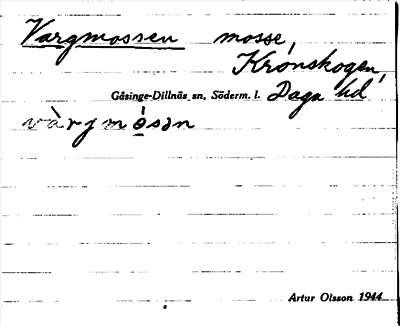 Vargmossen mosse,
Kronskogen,
Gåsinge-Dillnäs sn, Söderm. l. Daga hd
vàrjmósən
Artur Olsson 1944